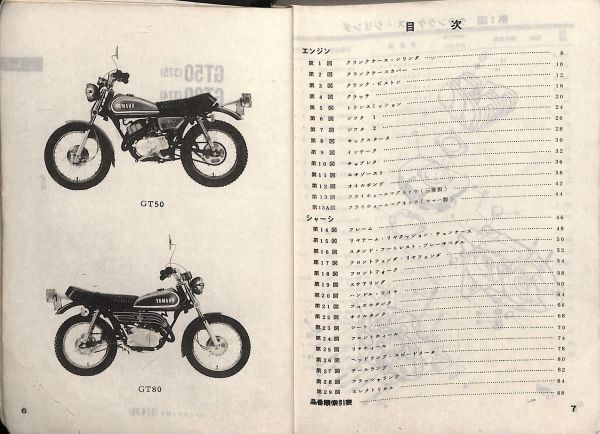 YAMAHA
GT50
YAMAHA
GT80
6
目 次
エンジン 8
第 1 図 クランクケース・シリンダ
第 2 図 クランクケースカバー 10
第 3 図 クランク・ピストン 12
第 4 図 クラッチ 16
第 5 図 トランスミッション 20
第 6 図 シフタ 1 24
第 7 図 シフタ 2 26
第 8 図 キックスタータ 28
第 9 図 インテーク 30
第10図 キャブレタ 32
第11図 エキゾースト 36
第12図 オイルポンプ 38
第13図 フライホイールマグネトウ(三菱製) 42
第13A図 フライホィールマグネトウ 44
シャーシ 46
第14図 フレーム 48
第15図 リヤアーム・リヤクッション・チェンケース 50
第16図 スタンド・フートレスト・ブレーキペダル 52
第17図 フロントフェンダ・リヤフェンダ 54
第18図 フロントフォーク 58
第19図 ステアリング 60
第20図 ハンドル・ワイヤ 64
第21図 フュエルタンク 66
第22図 オイルタンク 68
第23図 シート 70
第24図 フロントホィール 74
第25図 リヤホィール 78
第26図 ヘッドランプ・スピードメータ 80
第27図 テールランプ 82
第28図 フラッシャランプ 84
第29図 エレクトリカル 88
品番順索引表
7